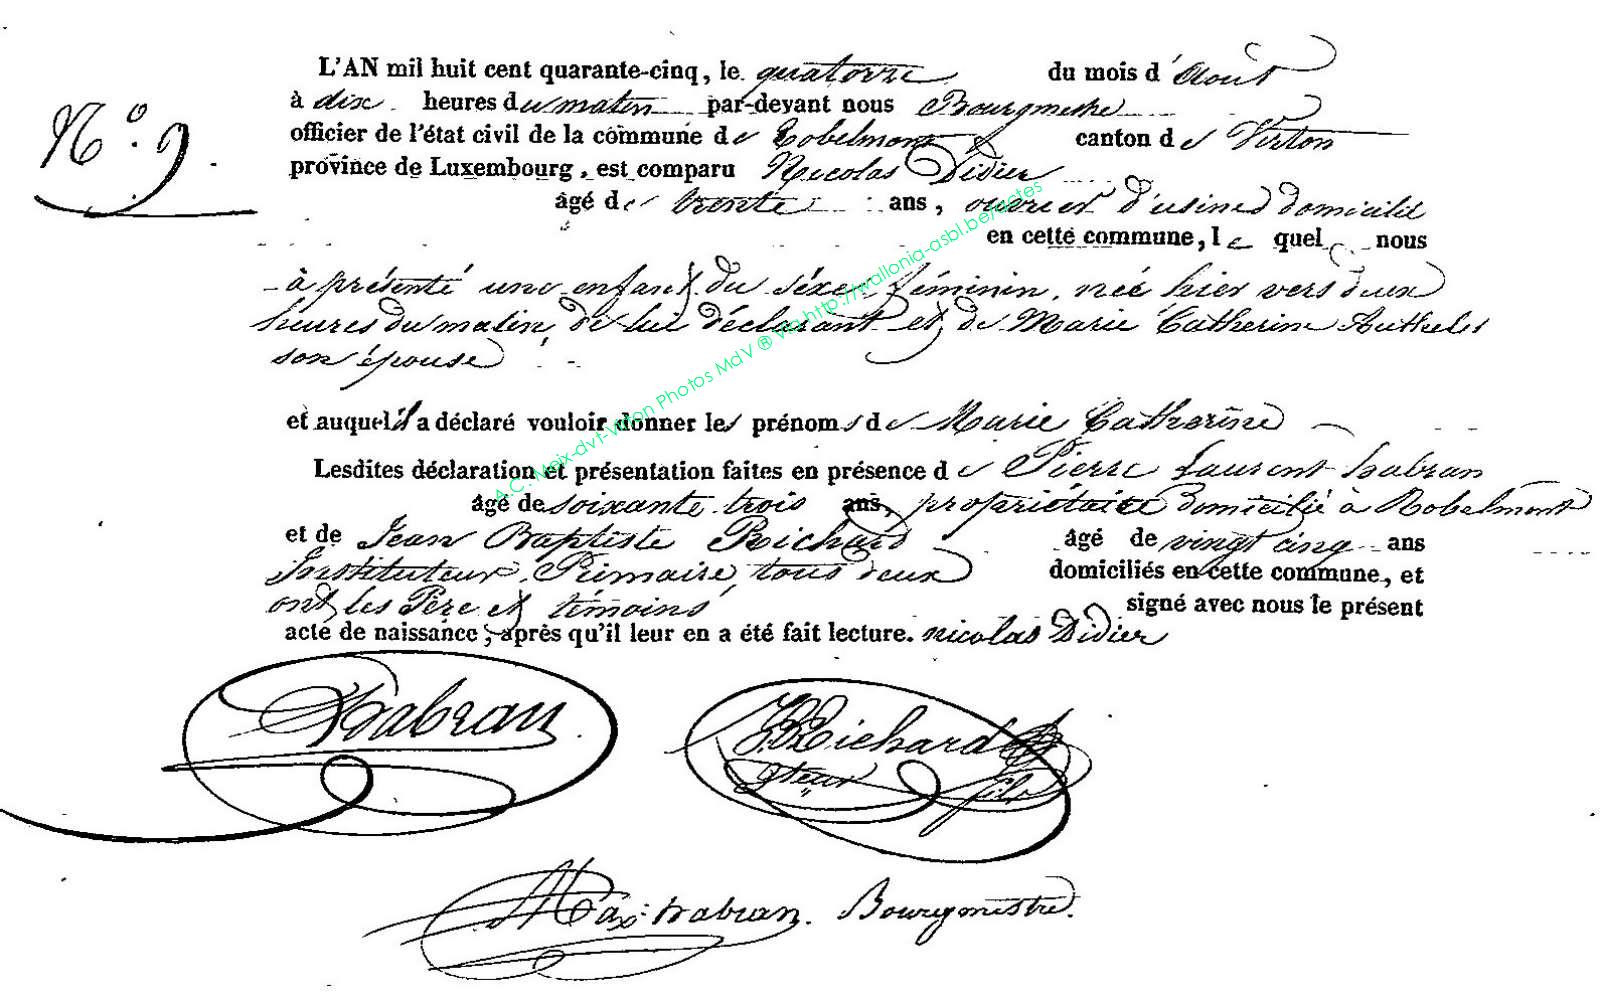 L'AN mil huit cent quarante-cinq, le quatorze du mois d'Août
à dix heures du matin par-devant nous Bourgmestre
N.º 9.
officier de l'état civil de la commune de Robelmont canton de Virton
province de Luxembourg, est comparu Nicolas Didier
âgé de trente ans, ouvrier d'usines domicilié
en cette commune, lequel nous
à présenté une enfant du séxe féminin, née hier vers deux
heures du matin, de lui déclarant et de Marie Catherine
son épouse
et auquel il a déclaré vouloir donner les prénoms de Marie Catherine
Lesdites déclaration et présentation faites en présence de Pierre Laurent habran
âgé de soixante trois ans, propriétaire domicilié à Robelmont
et de Jean Baptiste Richard âgé de vingt cinq ans
Instituteur Primaire, tous deux domiciliés en cette commune, et
ont les Père et témoins signé avec nous le présent
acte de naissance, après qu'il leur en a été fait lecture. nicolas Didier
habran
Richard
fils
habran. Bourgmestre.
A.C. Meix-dvt-Virton Photos MdV ® via http://wallonia-asbl.be/actes